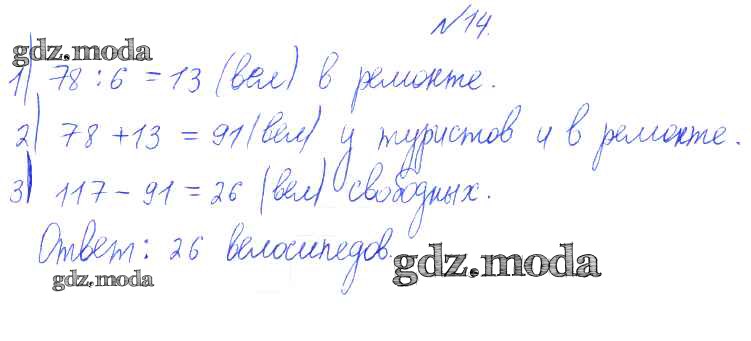 №14.
gdz.moda
1) 78 : 6 = 13 (вел) в ремонте.
2) 78 + 13 = 91 (вел) у туристов и в ремонте.
3) 117 - 91 = 26 (вел) свободных.
Ответ: 26 велосипедов.
gdz.moda
gdz.moda